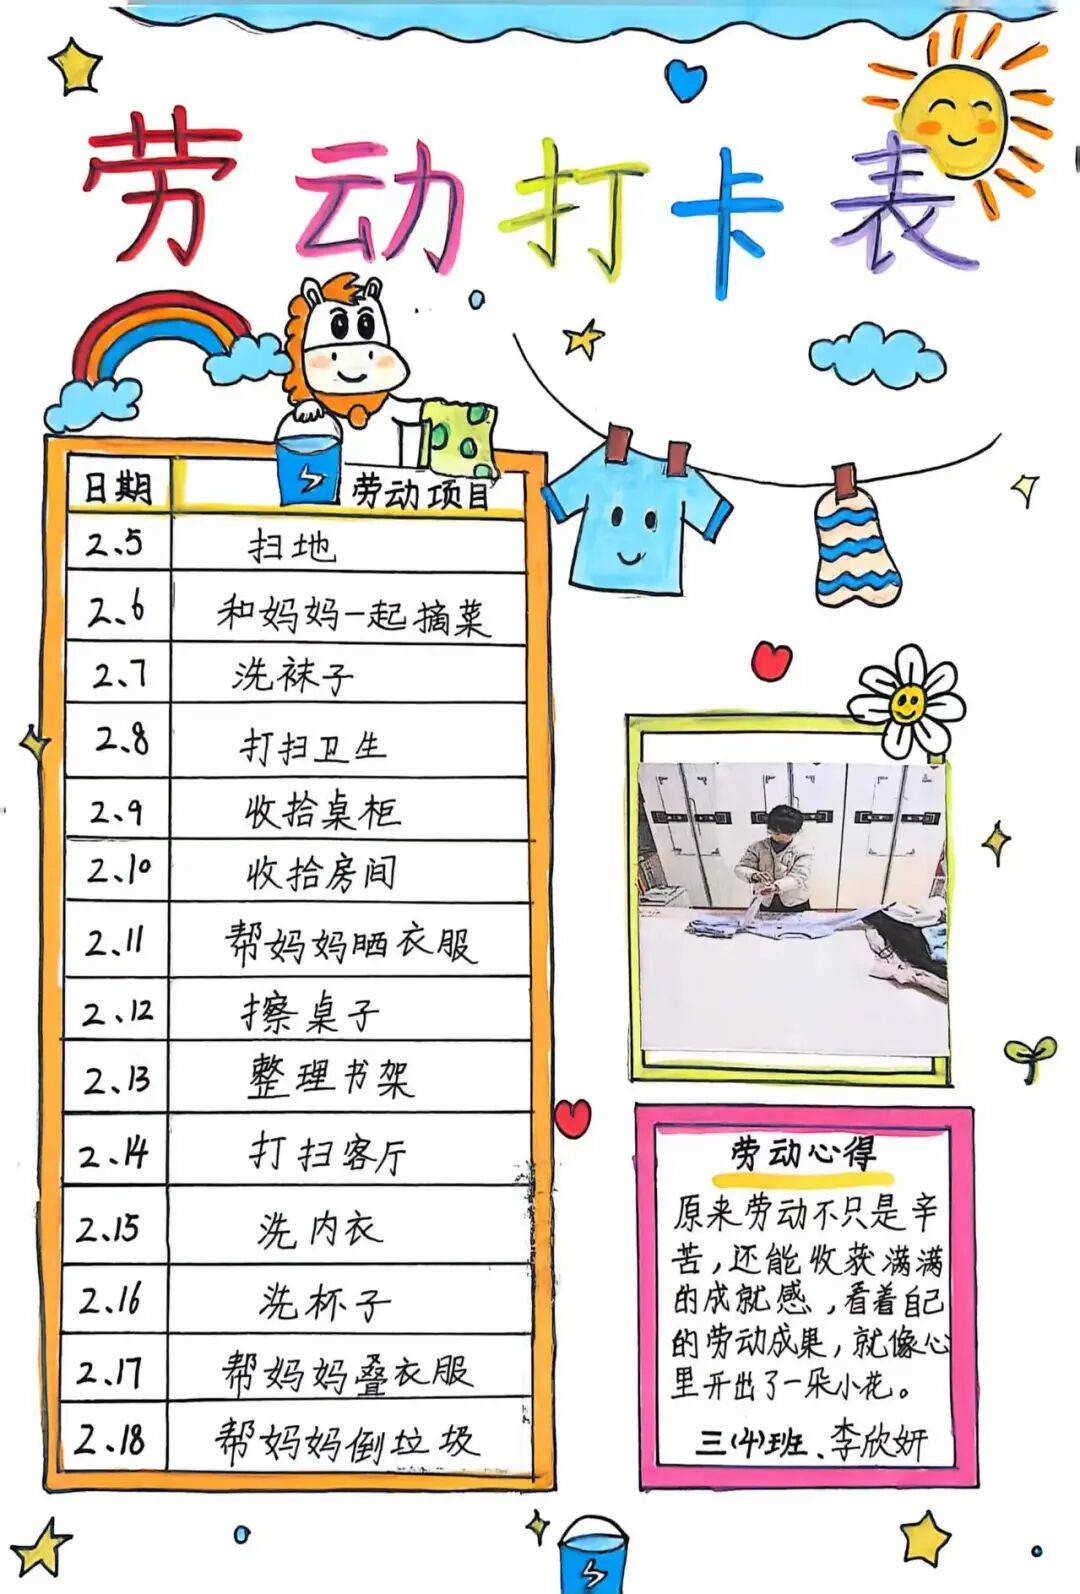 劳动打卡表
日期 劳动项目
2.5 扫地
2.6 和妈妈一起摘菜
2.7 洗袜子
2.8 打扫卫生
2.9 收拾桌柜
2.10 收拾房间
2.11 帮妈妈晒衣服
2.12 擦桌子
2.13 整理书架
2.14 打扫客厅
2.15 洗内衣
2.16 洗杯子
2.17 帮妈妈叠衣服
2.18 帮妈妈倒垃圾
劳动心得
原来劳动不只是辛
苦,还能收获满满
的成就感,看着自己
的劳动成果,就像心
里开出了一朵小花。
三(4)班、李欣妍